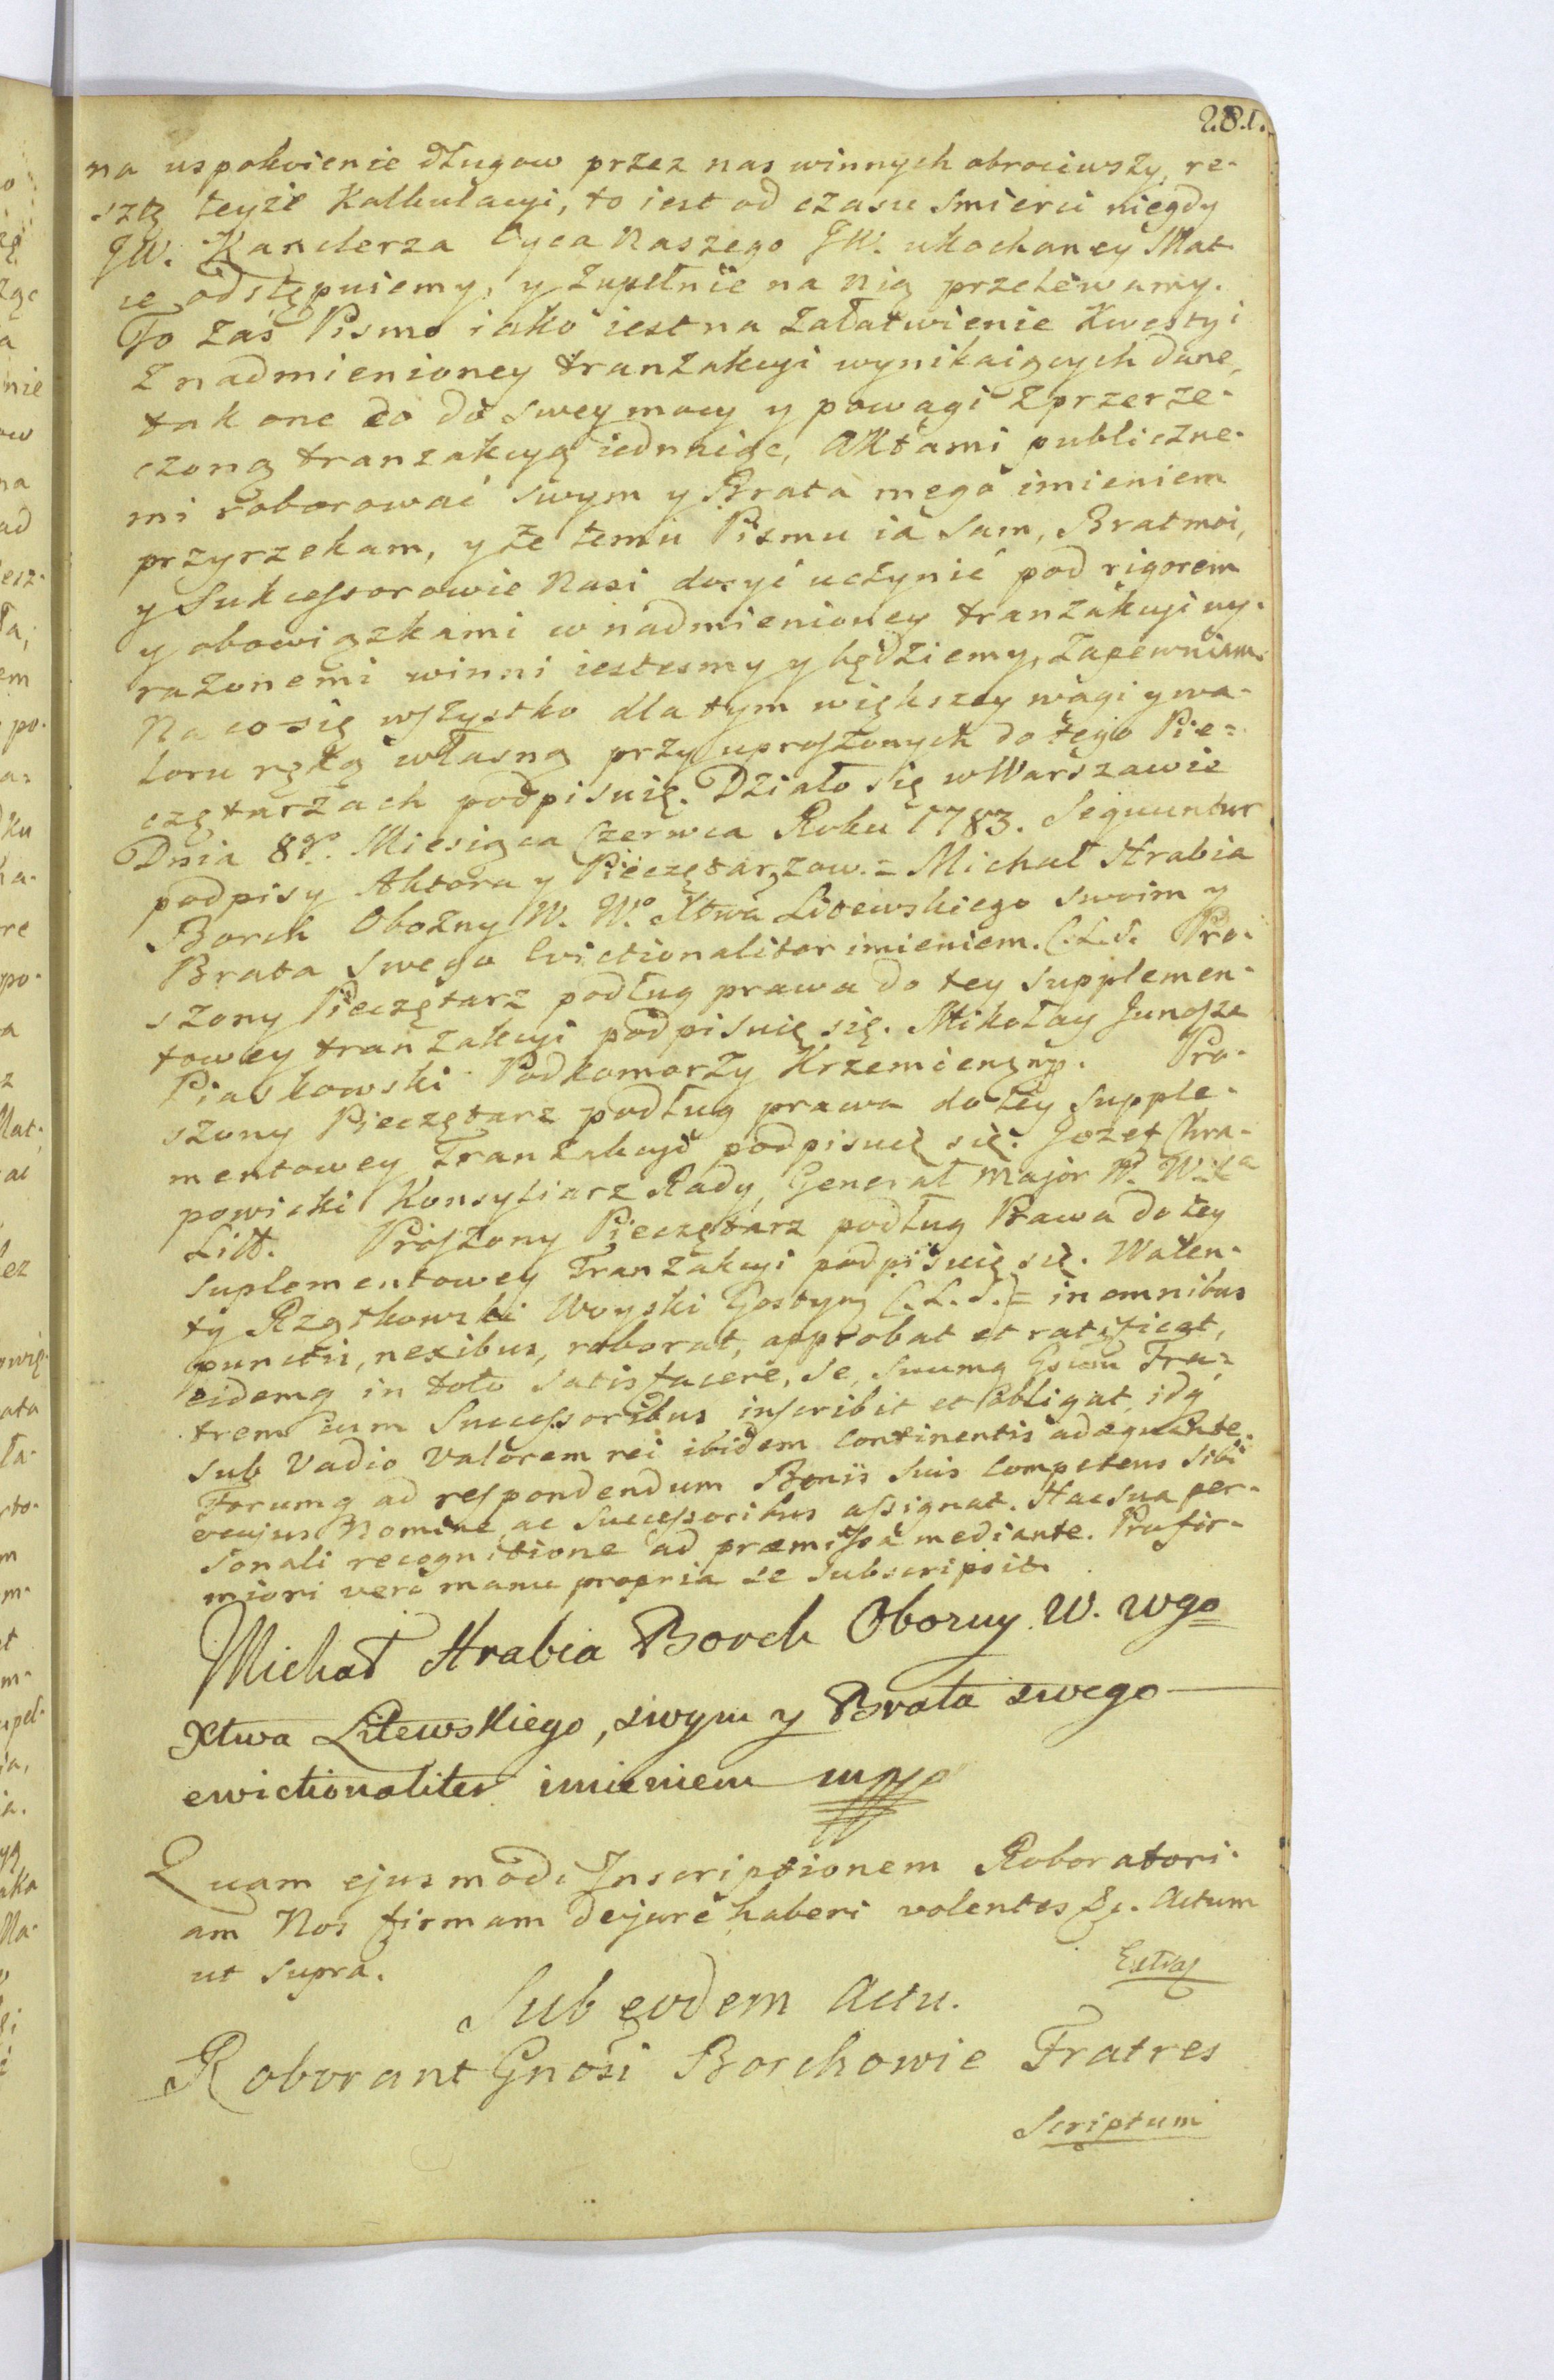 281.
na uspokoienie długow przez nas winnych obrociwszy, re-
sztę teyże Kalkulacyi, to iest od czasu Smierci niegdy
JW. Kanclerza Oyca Naszego JW. ukochaney Mat
ce odstępuiemy, y zupełnie na nią przelewamy.
To zaś Pismo iako iest na Załatwienie Kwestyi
z nadmienioney tranzakcyi wynikaiących dane,
tak one co do swey mocy y powagi z przerze-
czoną tranzakcyą iednaiąc, Aktami publiczne-
mi roborować swym y Brata mego imieniem
przyrzekam, y że temu Pismu ia sam, Brat moi,
y Sukcessorowie Nasi dosyć uczynić pod rigorem
y obowiązkami w nadmienioney tranzakcyi wy-
rażonemi winni iestesmy y będziemy, zapewniam.
Na co się wszystko dla tym większey wagi y wa-
loru ręką własną przy uproszonych do tego Pie-
czętarzach podpisuię. Działo się w Warszawie
Dnia 8go. Miesiąca Czerwca Roku 1783. Sequuntur
podpisy Aktora y Pieczętarzow. = Michał Hrabia
Borch Obożny W. Wo. Xtwa Litewskiego swoim y
Brata swego Evictionaliter imieniem. (:L.S. Pro-
szony Pieczętarz podług prawa do tey supplemen-
towey tranzakcyi podpisuię się. Mikołay Junosza
Piaskowski Podkomorzy Krzemien: mp. Pro-
szony Pieczętarz podług prawa do tey supple-
mentowey Tranzakcyi podpisuię się. Jozef Chra-
powicki Konsyliarz Rady, General Major W. W. Xa
Litt. Proszony Pieczętarz podług Prawa do tey
suplementowey Tranzakcyi podpisuię się. Walen-
ty Rzątkowski Woyski Gostyn (:L.S.) = in omnibus
punctis, nexibus, roborat, approbat et ratificat,
eidemq in toto satisfacere, se, suumq Gsum Fra-
trem cum Successoribus inscribit et obligat, idq
sub Vadio Valorem rei ibidem continentis adæquante.
Forumq ad respondendum Boniis suis competens sibi
ejus Nomine ac Successoribus assignat. Hac sua per-
sonali recognitione ad præmissa mediante. Pro fir-
miori vero manu propria se subscripsit.
Michał Hrabia Borch Obozny W. Wgo
Xtwa Litewskiego, swym y Brata swego
ewictionaliter imieniem mp
Quam ejusmodi Inscriptionem Roboratori-
am Nos firmam dejure haberi volentes &c. Actum
ut supra.
Extras
Sub eodem Actu.
Roborant Gnosi Borchowie Fratres
Scriptum